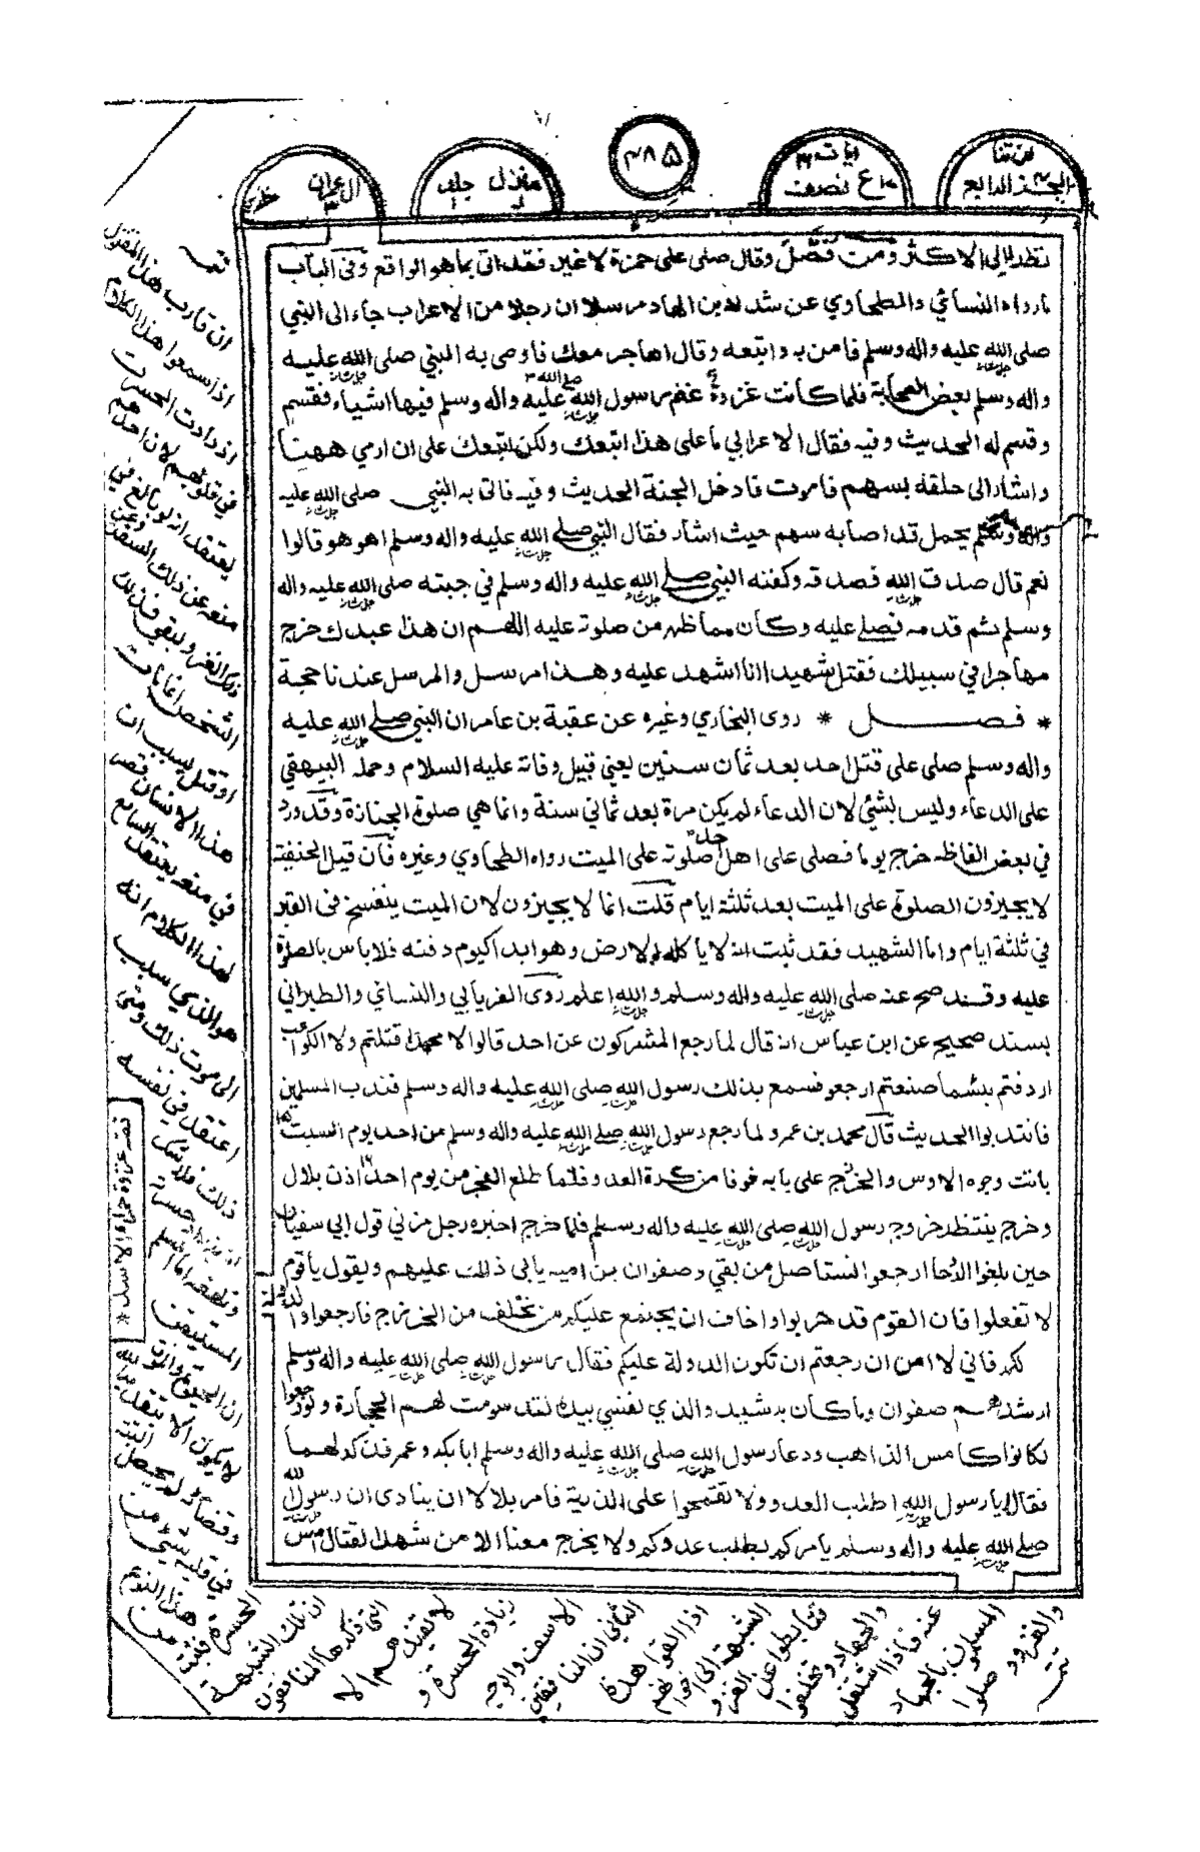 لن تنا الجزء الرابع
٤ع نصف
٣٨٥
منزل
ال عمران
نظرا الى الاكثر ومن فصّل وقال صلى على حمزة لا غير فقد اتى بما هو الواقع وفى الباب
مارواه النسائي والطحاوي عن شداد بن الهاد مرسلا ان رجلا من الاعراب جاء الى النبي
صلى الله عليه واله وسلم فامن به واتبعه وقال اهاجر معك فاوصى به النبي صلى الله عليه
واله وسلم بعض الصحابة فلما كانت غزوة غنم رسول الله عليه واله وسلم فيها اشياء فقسم
وقسم له الحديث وفيه فقال الاعرابي ما على هذا اتبعك ولكن اتبعك على ان ارمي ههنا
واشار الى حلقه بسهم فاموت فادخل الجنة الحديث وفيه فاتى به النبي صلى الله عليه
واله وسلم يحمل قد اصابه سهم حيث اشار فقال النبي صلى الله عليه واله وسلم اهو هو قالوا
نعم قال صدق الله فصدقه وكفنه النبي صلى الله عليه واله وسلم في جبته صلى الله عليه واله
وسلم ثم قدمه فصلى عليه وكان مما ظهر من صلوته عليه اللهم ان هذا عبدك خرج
مهاجرا في سبيلك فقتل شهيدا انا اشهد عليه وهذا مرسل والمرسل عندنا حجة
* فصل * روى البخاري وغيره عن عقبة بن عامر ان النبي صلى الله عليه
واله وسلم صلى على قتل احد بعد ثمان سنين يعني قبيل وفاته عليه السلام وحمله البيهقي
على الدعاء وليس بشئي لان الدعاء لم يكن مرة بعد ثماني سنة وانما هي صلوة الجنازة وقد ورد
في بعض الفاظه خرج يوما فصلى على اهل احد صلوته على الميت رواه الطحاوي وغيره فان قيل الحنفية
لا يجيزون الصلوة على الميت بعد ثلثة ايام قلت انما لا يجيزون لان الميت ينفسخ فى القبر
في ثلثة ايام واما الشهيد فقد ثبت انه لا ياكله الارض وهو ابدا كيوم دفنه فلا باس بالصلوة
عليه وقد صح عنه صلى الله عليه واله وسلم والله اعلم روى الفريابي والنسائي والطبراني
بسند صحيح عن ابن عباس انه قال لما رجع المشركون عن احد قالوا لا محمدا قتلتم ولا الكواعب
اردفتم بئسما صنعتم ارجعو فسمع بذلك رسول الله صلى الله عليه واله وسلم فندب المسلمين
فانتدبوا الحديث قال محمد بن عمرو لما رجع رسول الله صلى الله عليه واله وسلم من احد يوم السبت
باتت وجوه الاوس والخزرج على بابه خوفا من كرة العدو فلما طلع الفجر من يوم احد اذن بلال
وخرج ينتظر خروج رسول الله صلى الله عليه واله وسلم فلما خرج اخبره رجل مزني قول ابي سفيان
حين بلغوا الروحا ارجعوا لنستاصل من بقي وصفوان بن اميه يابى ذلك عليهم ويقول ياقوم
لا تفعلوا فان القوم قد هربوا واخاف ان يجتمع عليكم من تخلف من الخزرج فارجعوا والدولة
لكم فاني لا امن ان رجعتم ان تكون الدولة عليكم فقال رسول الله صلى الله عليه واله وسلم
ارشدهم صفوان وما كان برشيد والذي نفسي بيده لقد سومت لهم الحجارة ولو رجعوا
لكانوا كامس الذاهب ودعا رسول الله صلى الله عليه واله وسلم ابا بكر وعمر فذكر لهما
فقال يارسول الله اطلب العدو ولا تقتحموا على الذرية فامر بلالا ان ينادى ان رسول الله
صلى الله عليه واله وسلم يامركم بطلب عدوكم ولا يخرج معنا الا من شهد القتال امس
ان قارب هذا المقول
اذا سمعوا هذا الكلام
ازدادت الحسرت
في قلوبهم لان احدهم
يعتقد انه لو بالغ في
منعه عن ذلك السفر وعن
ذلك الغزو لبقي فذلك
الشخص انما مات
او قتل بسبب ان
هذا الانسان قصر
في منعه يعتقد السامع
لهذا الكلام انه
هو الذي سبب
الى موت ذلك ومتى
اعتقد في نفسه
ذلك فلا شك
قصة غزوة حمراء الاسد *
لا يكون الا بتقدير الله
في قلبه شئ من
هذا النوع
الحسرة
ان تلك الشبهة
التى ذكرها المنافقون
لا تفيدهم الا
زيادة الحسرة و
الاسف والوجه
الثاني ان المنافقين
اذا القوا هذه
الشبهة الى اخوانهم
تثابطوا عن الغزو
والجهاد وتخلفوا
عنه فاذا اشتغل
المسلمون بالجهاد
والغزو وصلوا